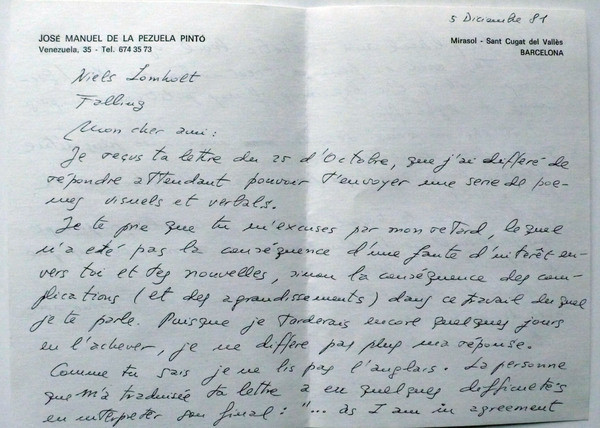 5 Diciembre 81
JOSÉ MANUEL DE LA PEZUELA PINTÓ
Venezuela, 35 - Tel. 674 35 73
Mirasol - Sant Cugat del Vallès
BARCELONA
Niels Lomholt
Falling
Mon cher ami:
Je reçus ta lettre du 25 d'Octobre, que j'ai différé de
répondre attendant pouvoir t'envoyer une serie de poe-
mes visuels et verbals.
Je te prie que tu m'excuses par mon retard, lequel
n'a eté pas la conséquence d'une faute d'intérêt en-
vers toi et tes nouvelles, sinon la conséquence des com-
plications (et des agrandissements) dans ce travail duquel
je te parle. Puisque je tarderais encore quelques jours
en l'achever, je ne diffère pas plus ma réponse.
Comme tu sais je ne lis pas l'anglais. La personne
que m'a traduisée ta lettre a eu quelques difficuletés
en interpreter son final: "... as I am in agreement